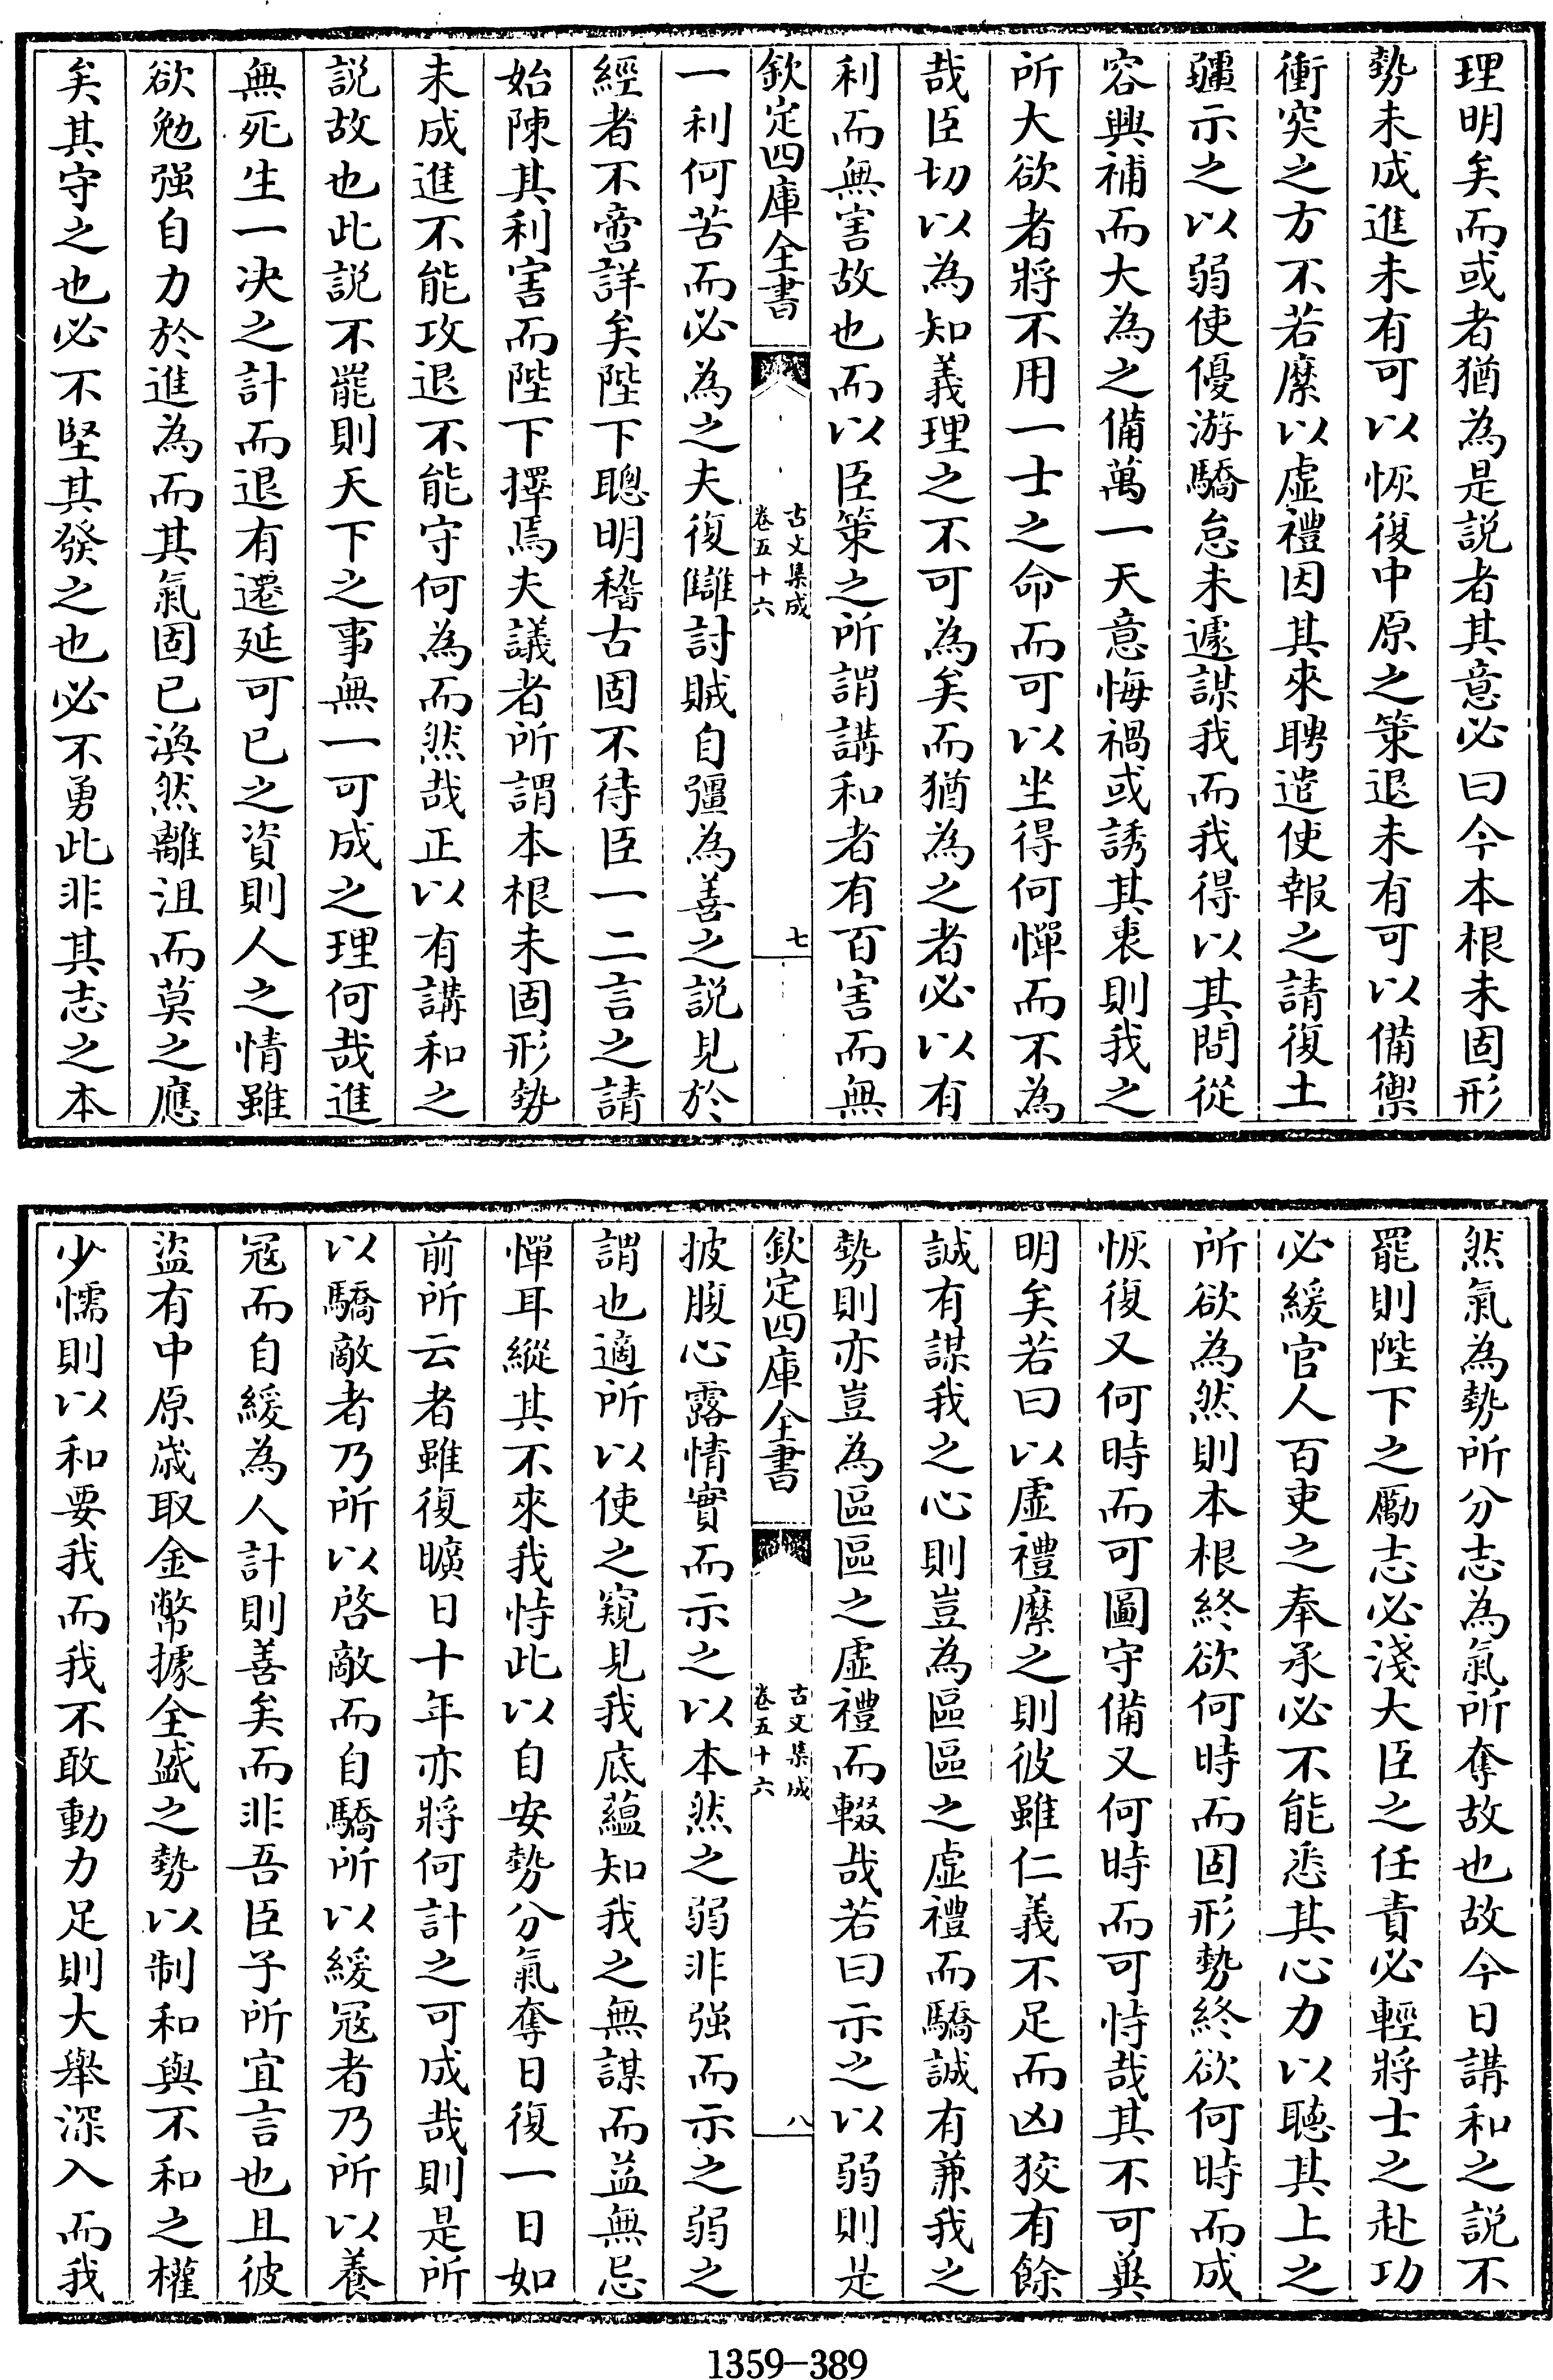 理明矣而或者猶為是説者其意必曰今本根未固形
勢未成進未有可以恢復中原之策退未有可以備禦
衝突之方不若縻以虛禮因其來聘遣使報之請復土
疆示之以弱使優游驕怠未遽謀我而我得以其間從
容興補而大為之備萬一天意悔禍或誘其衷則我之
所大欲者將不用一士之命而可以坐得何憚而不為
哉臣切以為知義理之不可為矣而猶為之者必以有
利而無害故也而以臣策之所謂講和者有百害而無
欽定四庫全書
古文集成
卷五十六
七
一利何苦而必為之夫復讎討賊自彊為善之説見於
經者不啻詳矣陛下聰明稽古固不待臣一二言之請
始陳其利害而陛下擇焉夫議者所謂本根未固形勢
未成進不能攻退不能守何為而然哉正以有講和之
説故也此説不罷則天下之事無一可成之理何哉進
無死生一决之計而退有遷延可已之資則人之情雖
欲勉强自力於進為而其氣固已渙然離沮而莫之應
矣其守之也必不堅其發之也必不勇此非其志之本
然氣為勢所分志為氣所奪故也故今日講和之説不
罷則陛下之勵志必淺大臣之任責必輕將士之赴功
必緩官人百吏之奉承必不能悉其心力以聽其上之
所欲為然則本根終欲何時而固形勢終欲何時而成
恢復又何時而可圖守備又何時而可恃哉其不可兾
明矣若曰以虛禮縻之則彼雖仁義不足而凶狡有餘
誠有謀我之心則豈為區區之虛禮而驕誠有兼我之
勢則亦豈為區區之虛禮而輟哉若曰示之以弱則是
欽定四庫全書
古文集成
卷五十六
八
披腹心露情實而示之以本然之弱非强而示之弱之
謂也適所以使之窺見我底蘊知我之無謀而益無忌
憚耳縱其不來我恃此以自安勢分氣奪日復一日如
前所云者雖復曠日十年亦將何計之可成哉則是所
以驕敵者乃所以啓敵而自驕所以緩冦者乃所以養
冦而自緩為人計則善矣而非吾臣子所宜言也且彼
盜有中原歲取金幣據全盛之勢以制和與不和之權
少懦則以和要我而我不敢動力足則大舉深入而我
1359-389